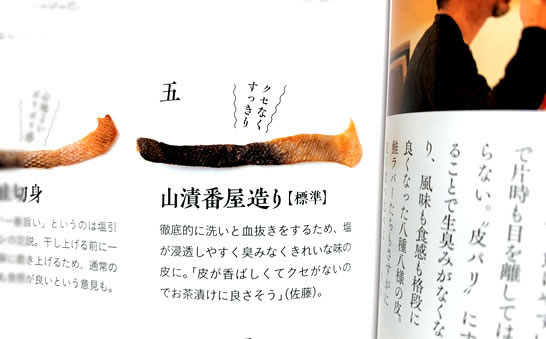 五
クセなく
すっきり
山漬番屋造り【標準】
徹底的に洗いと血抜きをするため、塩
が浸透しやすく臭みなくきれいな味の
皮に。「皮が香ばしくてクセがないの
でお茶漬けに良さそう」(佐藤)。
切身
一番旨い”というのは塩引
の定説。干し上げる前に一
き上げるため、通常の
が良いという意見も。
で片時も目を離しては
らない。“皮パリ”にす
ることで生臭みがなくな
り、風味も食感も格段に
良くなった八種八様の皮。